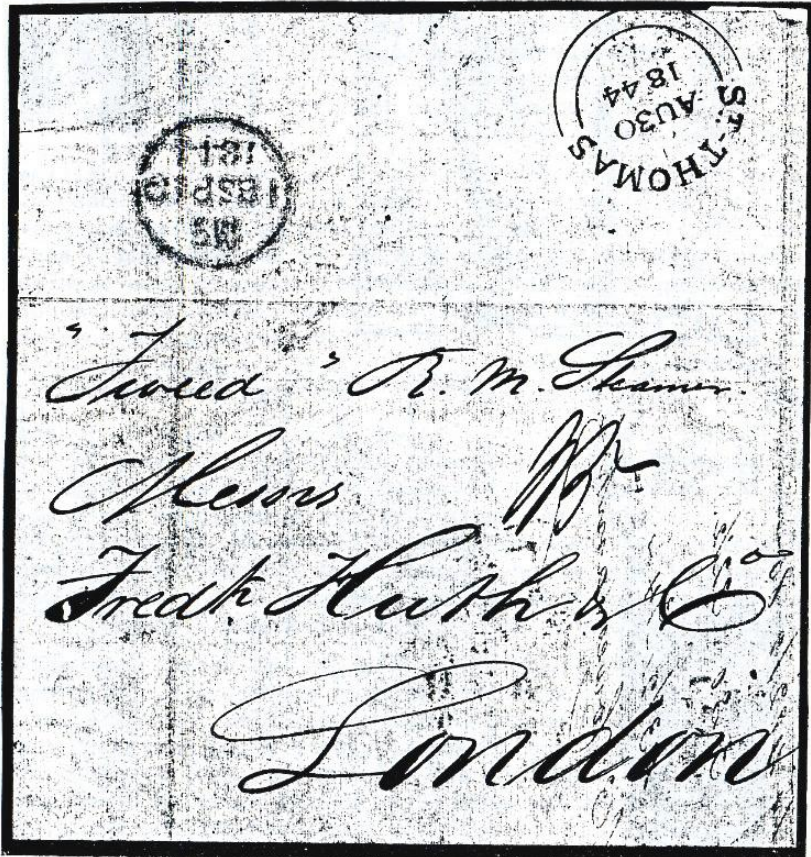 ST-THOMAS
AU30
1844
18SP18
1844
"Tweed" R. M. Steamer.
Messrs
Fredk Huth & Co
London